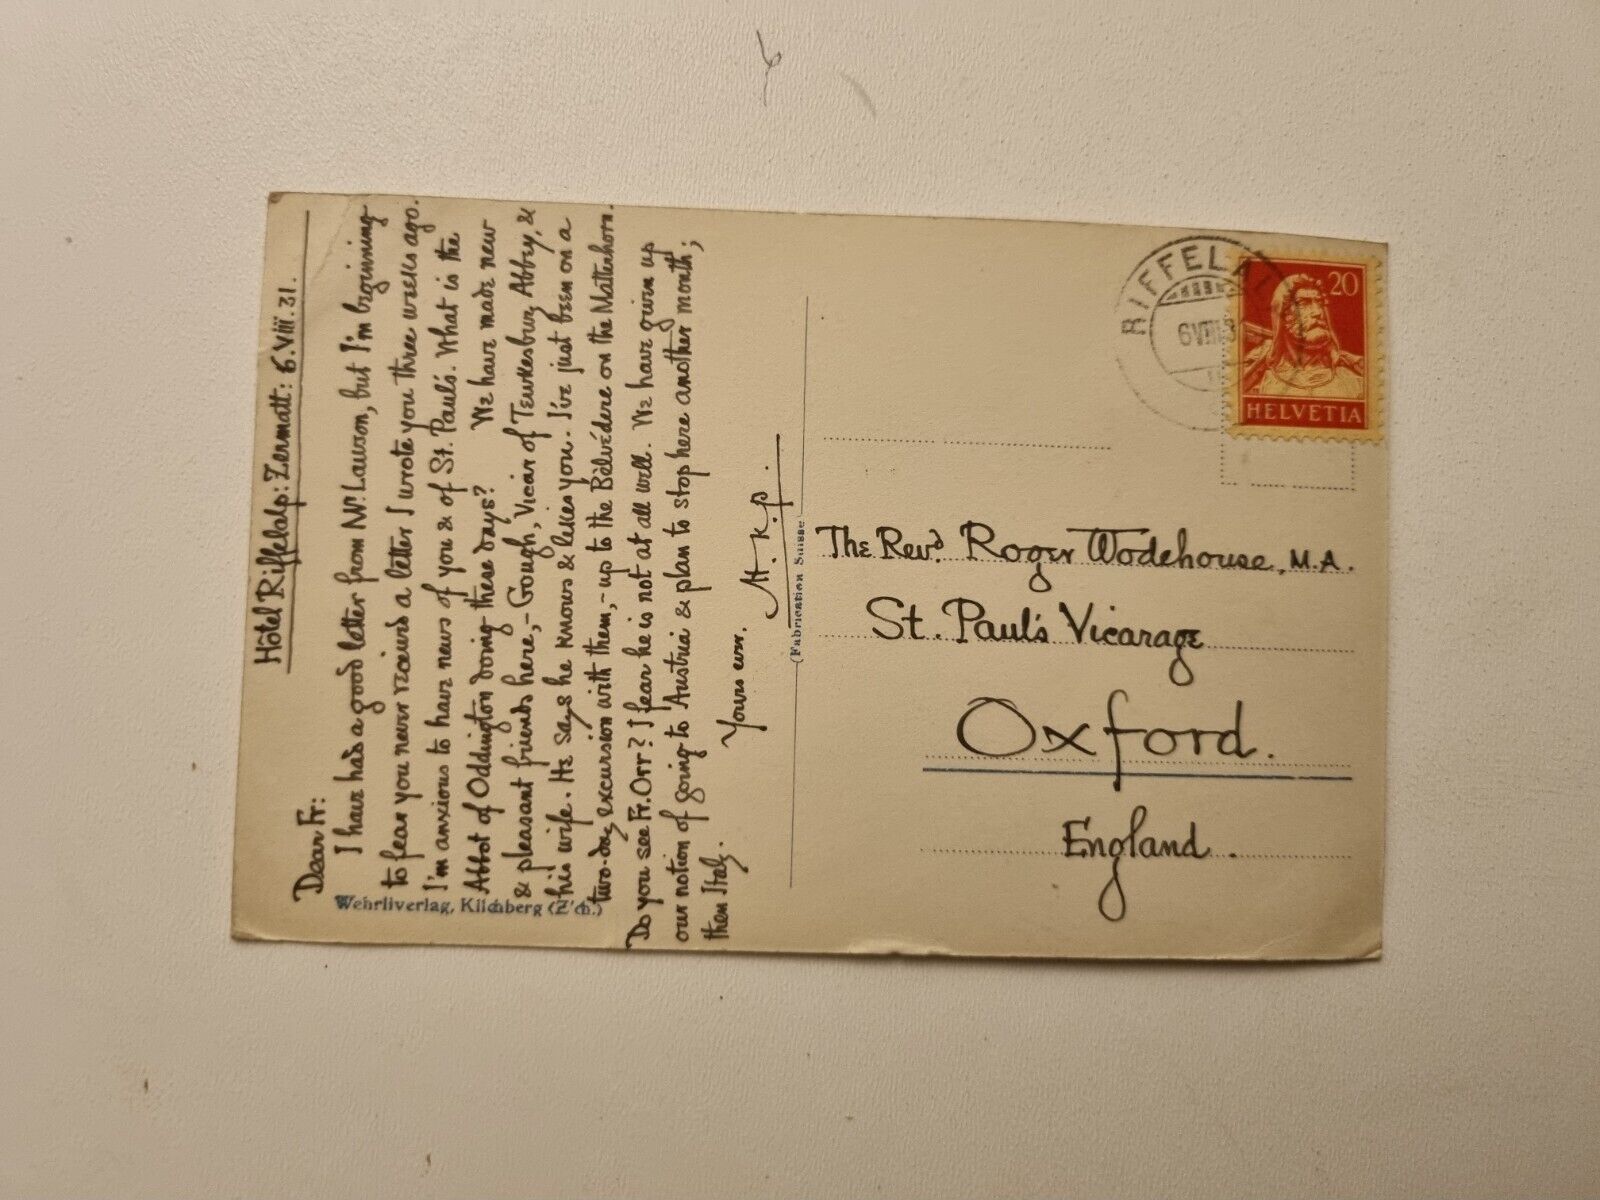 Hôtel Riffelalp: Zermatt: 6.VIII.31.
Dear Fr:
I have had a good letter from Mr. Lawson, but I'm beginning
to fear you never received a letter I wrote you three weeks ago.
I'm anxious to have news of you & of St. Paul's. What is the
Abbot of Oddington doing these days? We have made new
& pleasant friends here,- Gough, Vicar of Tewkesbury Abbey, &
his wife. He says he knows & likes you. I've just been on a
two-day excursion with them,- up to the Bélvédere on the Matterhorn.
Do you see Fr. Orr? I fear he is not at all well. We have given up
our notion of going to Austria & plan to stop here another month;
then Italy.
Yours ever.
H.K.P.
Wehrliverlag, Kilchberg (Z'ch.)
(Fabrication Suisse)
RIFFELAL
6VIII3
20
HELVETIA
The Revd. Roger Wodehouse, M.A.
St. Paul's Vicarage
Oxford.
England.